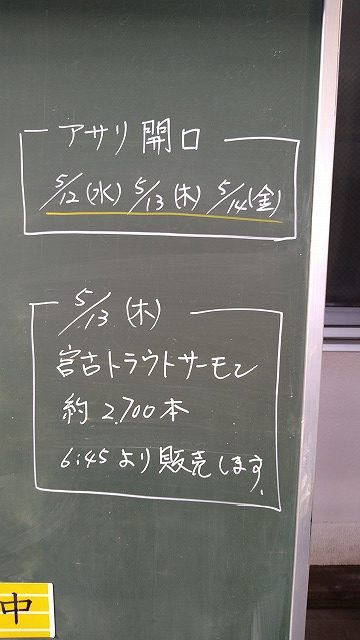 アサリ開口
5/12(水) 5/13(木) 5/14(金)
5/13(木)
宮古トラウトサーモン
約2,700本
6:45より販売します。
中